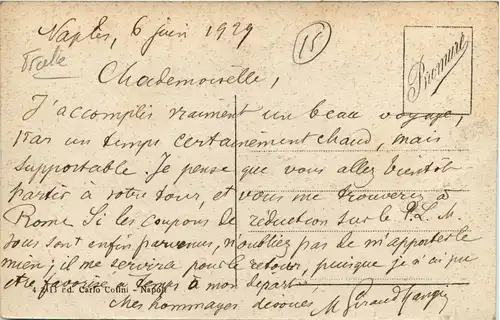 Naples, 6 juin 1929
15
Bromure
Mademoiselle,
J'accomplis vraiment un beau voyage,
par un temps certainement chaud, mais
supportable. Je pense que vous allez bientôt
partir à votre tour, et vous me trouverez à
Rome. Si les coupons de réduction sur le P. L. M.
vous sont enfin parvenus, n'oubliez pas de m'apporter le
mien; il me servira pour le retour, puisque je n'ai pu
être favorisé à temps à mon départ.
éd. Carlo Cotini - Napoli
Mes hommages dévoués
M